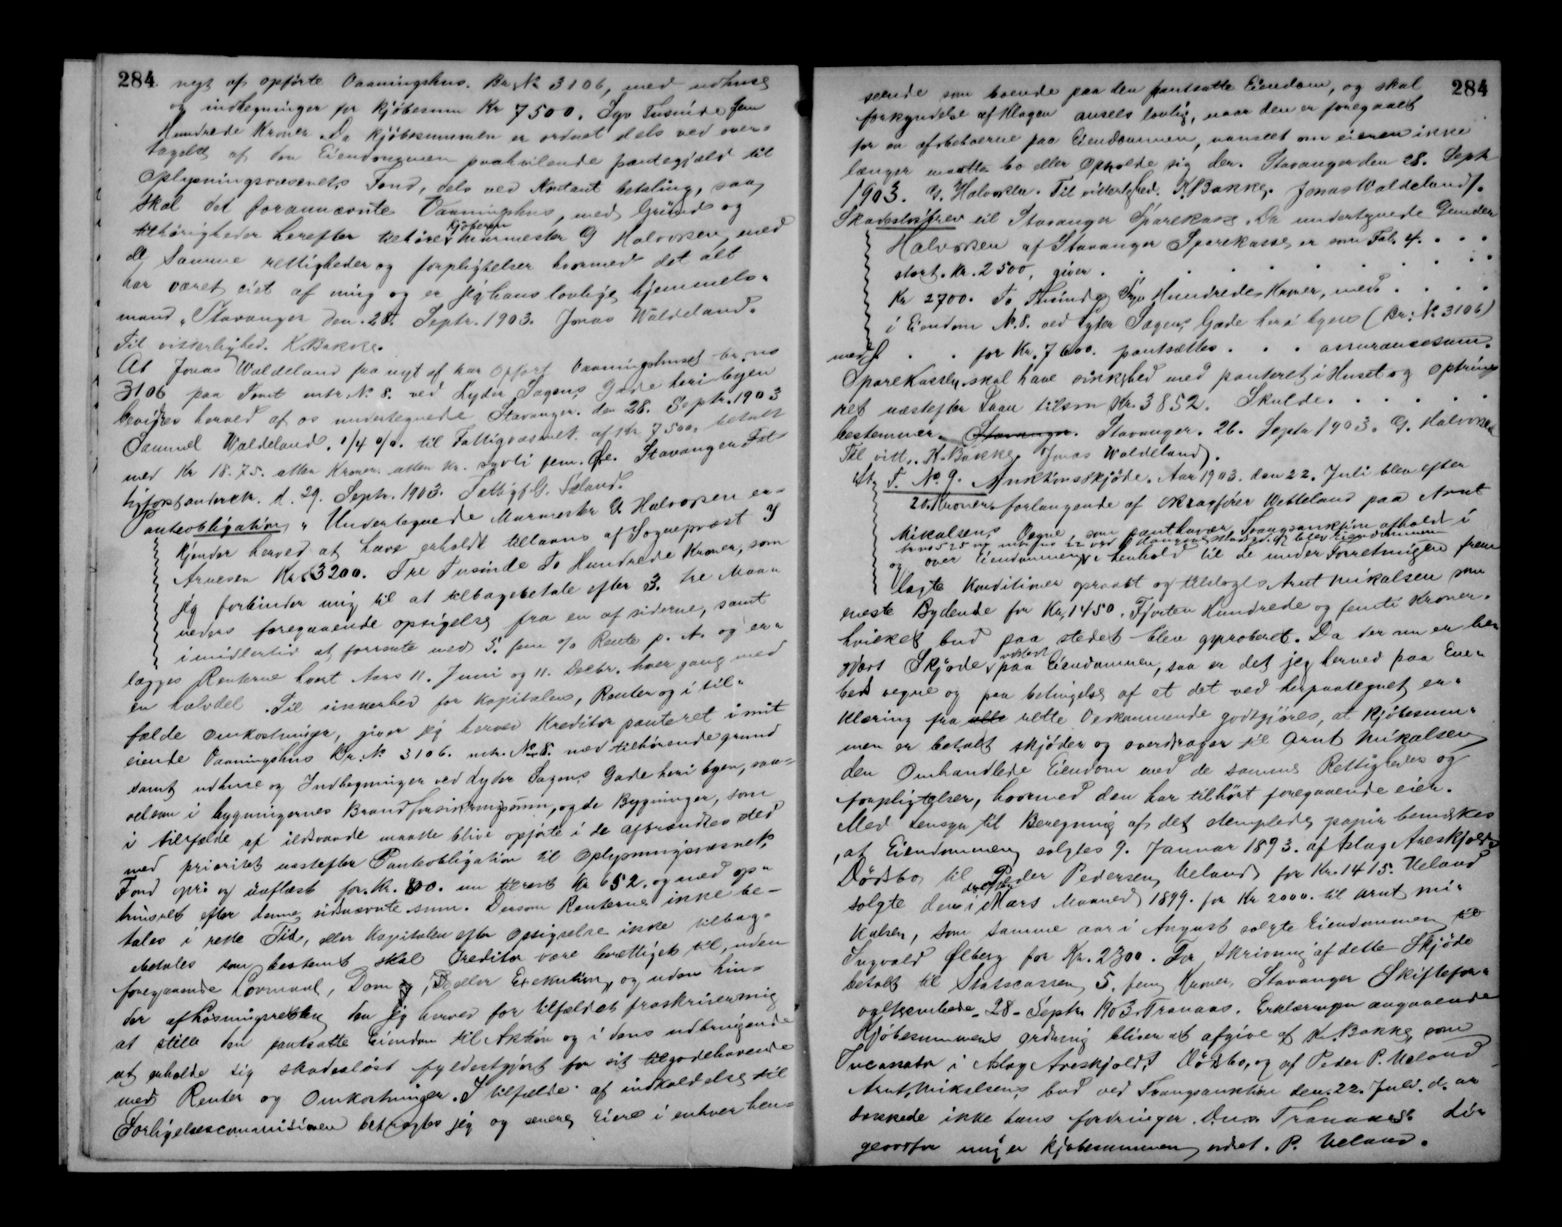 284
nyt af opførte Vaaningshus. Br. No 3106, med udhuse
og indhegninger for kjøbesum Kr 7500. Syv Tusinde fem
Hundrede Kroner. Da kjøbesummen er ordnet dels ved over-
tagelse af den Eiendommen paahvilende pantegjæld til
Oplysningsvæsenets Fond, dels ved Kontant betaling, saa
skal det forannævnte Vaaningshus, med Grund og
tilhørigheder herefter tilhøre kjøberen Murmester G Halvorsen, med
de samme rettigheder og forpligtelser hvormed det alt
har været eiet af mig og er jeg hans lovlige hjemmels-
mand. Stavanger den 28. Septr. 1903. Jonas Waldeland.
Til vitterlighed. K. Bakke.
At Jonas Waldeland fra nyt af har opført Vaaningshuset br. no
3106 paa Tomt mtr. No 8. ved Lyder Sagens Gade heri byen
bevidnes herved af os undertegnede Stavanger. den 28. Septr. 1903
Samuel Waldeland. 1/4 o/o. til Fattigvæsenet af Kr 7500, betalt
med Kr 18.75. atten Kroner. atten Kr. sytti fem Øre. Stavanger Fat-
tigforstandersk. d. 29. Septr. 1903. Fattigf. G. Søland.
Panteobligation, Undertegnede Murmester G Halvorsen er-
kjender herved at have erholdt tillaans af Sogneprest J
Arnesen Kr. 3200. Tre Tusinde To Hundrede Kroner, som
jeg forbinder mig til at tilbagebetale efter 3. tre Maa-
neders foregaaende opsigelse fra en af siderne, samt
imidlertid at forrente med 5. fem o/o Rente p. A. og er-
lægges Renterne hvert Aars 11. Juni og 11. Decbr. hver gang med
en halvdel. Til sikkerhed for Kapitalen, Renter og i til-
fælde omkostninger, giver jeg herved Kreditor panteret i mit
eiende Vaaningshus Br. No 3106. mtr. No 8. med tilhørende grund
samt udhuse og Indhegninger ved Lyder Sagens Gade heri byen, saa-
velsom i bygningernes Brandforsikringssum, og de Bygninger, som
i tilfælde af ildsvaade maatte blive opførte i de afbrændtes sted
med prioritet næstefter Panteobligation til Oplysningsvæsenets
Fond opri og uafløst for Kr. 800. nu tilrest Kr 652. og med op-
trinsret efter denne sidnævnte sum. Dersom Renterne ikke be-
tales i rette Tid, eller Kapitalen efter Opsigelse ikke tilbag-
ebetales som bestemt skal Creditor være berettiget til, uden
foregaaende Lovmaal, Dom eller Exekution, og uden hin-
der afløsningsretten den jeg herved for tilfældet fraskriver mig
at stille den pantsatte Eiendom til Auktion og i dens udbringende
at erholde sig skadesløst fyldestgjort for sit tilgodehavende
med Renter og Omkostninger. I tilfælde af indkaldelse til
Forligelsescommissionen betragtes jeg og senere Eiere i enhver hen-
284
seende som boende paa den pantsatte Eiendom, og skal
forkyndelse af Klagen ansees lovlig, naar den er foregaaet
for en af beboerne paa Eiendommen, uanseet om eieren ikke
længer maatte bo eller Opholde sig der. Stavanger den 28. Septr
1903. G. Halvorsen. Til vitterlighed. K. Bakke. Jonas Waldeland.
Skadesløsbrev til Stavanger Sparekasse. Da undertegnede Gunder
Halvorsen af Stavanger Sparekasse er som Fol. 4. . . .
stort. Kr. 2500, giver . . . . . . . . . .
Kr 2700. To Tusinde Syv Hundrede Kroner, med . . . .
i Eiendom N. 8. ved Lyder Sagens Gade her i byen (Br: No. 3106)
med . . . for Kr. 7600. pantsættes . . . assurancesum.
Sparekassen skal have sikkerhed med panteret i Huset og optrins-
ret næstefter Laan tilsm Kr. 3852. Skulde . . . . .
bestemmer. Stavanger. Stavanger. 26. Septr 1903. G. Halvorsen
Til vitt. K. Bakke. Jonas Waldeland.
F. No. 9. Auktionsskjøde. Aar 1903. den 22. Juli blev efter
forlangende af Overretssagfører Wetteland paa Arnt
Mikalsens Vegne som panthaver, Tvangsauktion afholdt i
og over Eiendommen i henhold til de under Forretningen frem-
lagte Konditioner opraabt og tilslagt Arnt Mikalsen som
eneste Bydende for Kr. 1450. Fjorten Hundrede og femti Kroner.
hvilket bud paa stedet blev approberet. Da der nu er be-
gjært Skjøde udstedt paa Eiendommen, saa er det jeg herved paa Em-
beds vegne og paa betingelse af at det ved herpaategnet er-
klæring fra alle rette Vedkommende godtgjøres, at Kjøbesum-
men er betalt skjøder og overdrager til Arnt Mikalsen
den Omhandlede Eiendom med de samme Rettigheder og
forpligtelser, hvormed den har tilhørt foregaaende eier.
Med Hensyn til Beregning af det stemplede papir bemærkes
, at Eiendommen solgtes 9. Januar 1893. af Aslag Areskjolds
Dødsbo til Peder Pedersen Ueland for Kr. 1415. Ueland
solgte den i Mars Maaned 1899. for Kr 2000. til Arnt Mi-
kalsen, som samme aar i August solgte Eiendommen til
Ingvald Ølberg for Kr. 2300. For skrivning af dette Skjøde
betalt til Statscassen 5. fem Kroner. Stavanger Skiftefor-
valterembede 28 Septr 1903. Tranaas. Erklæringer angaaende
Kjøbesummens ordning bliver at afgive af K. Bakke, som
Incassator i Aslag Areskjolds Dødsbo, og af Peder P. Ueland
Arnt Mikalsens bud ved Tvangsauktion den 22. Juli d. aar
dækkede ikke hans fordringer. Tranaas. Li-
geoverfor mig er Kjøbesummen ordnet. P. Ueland.